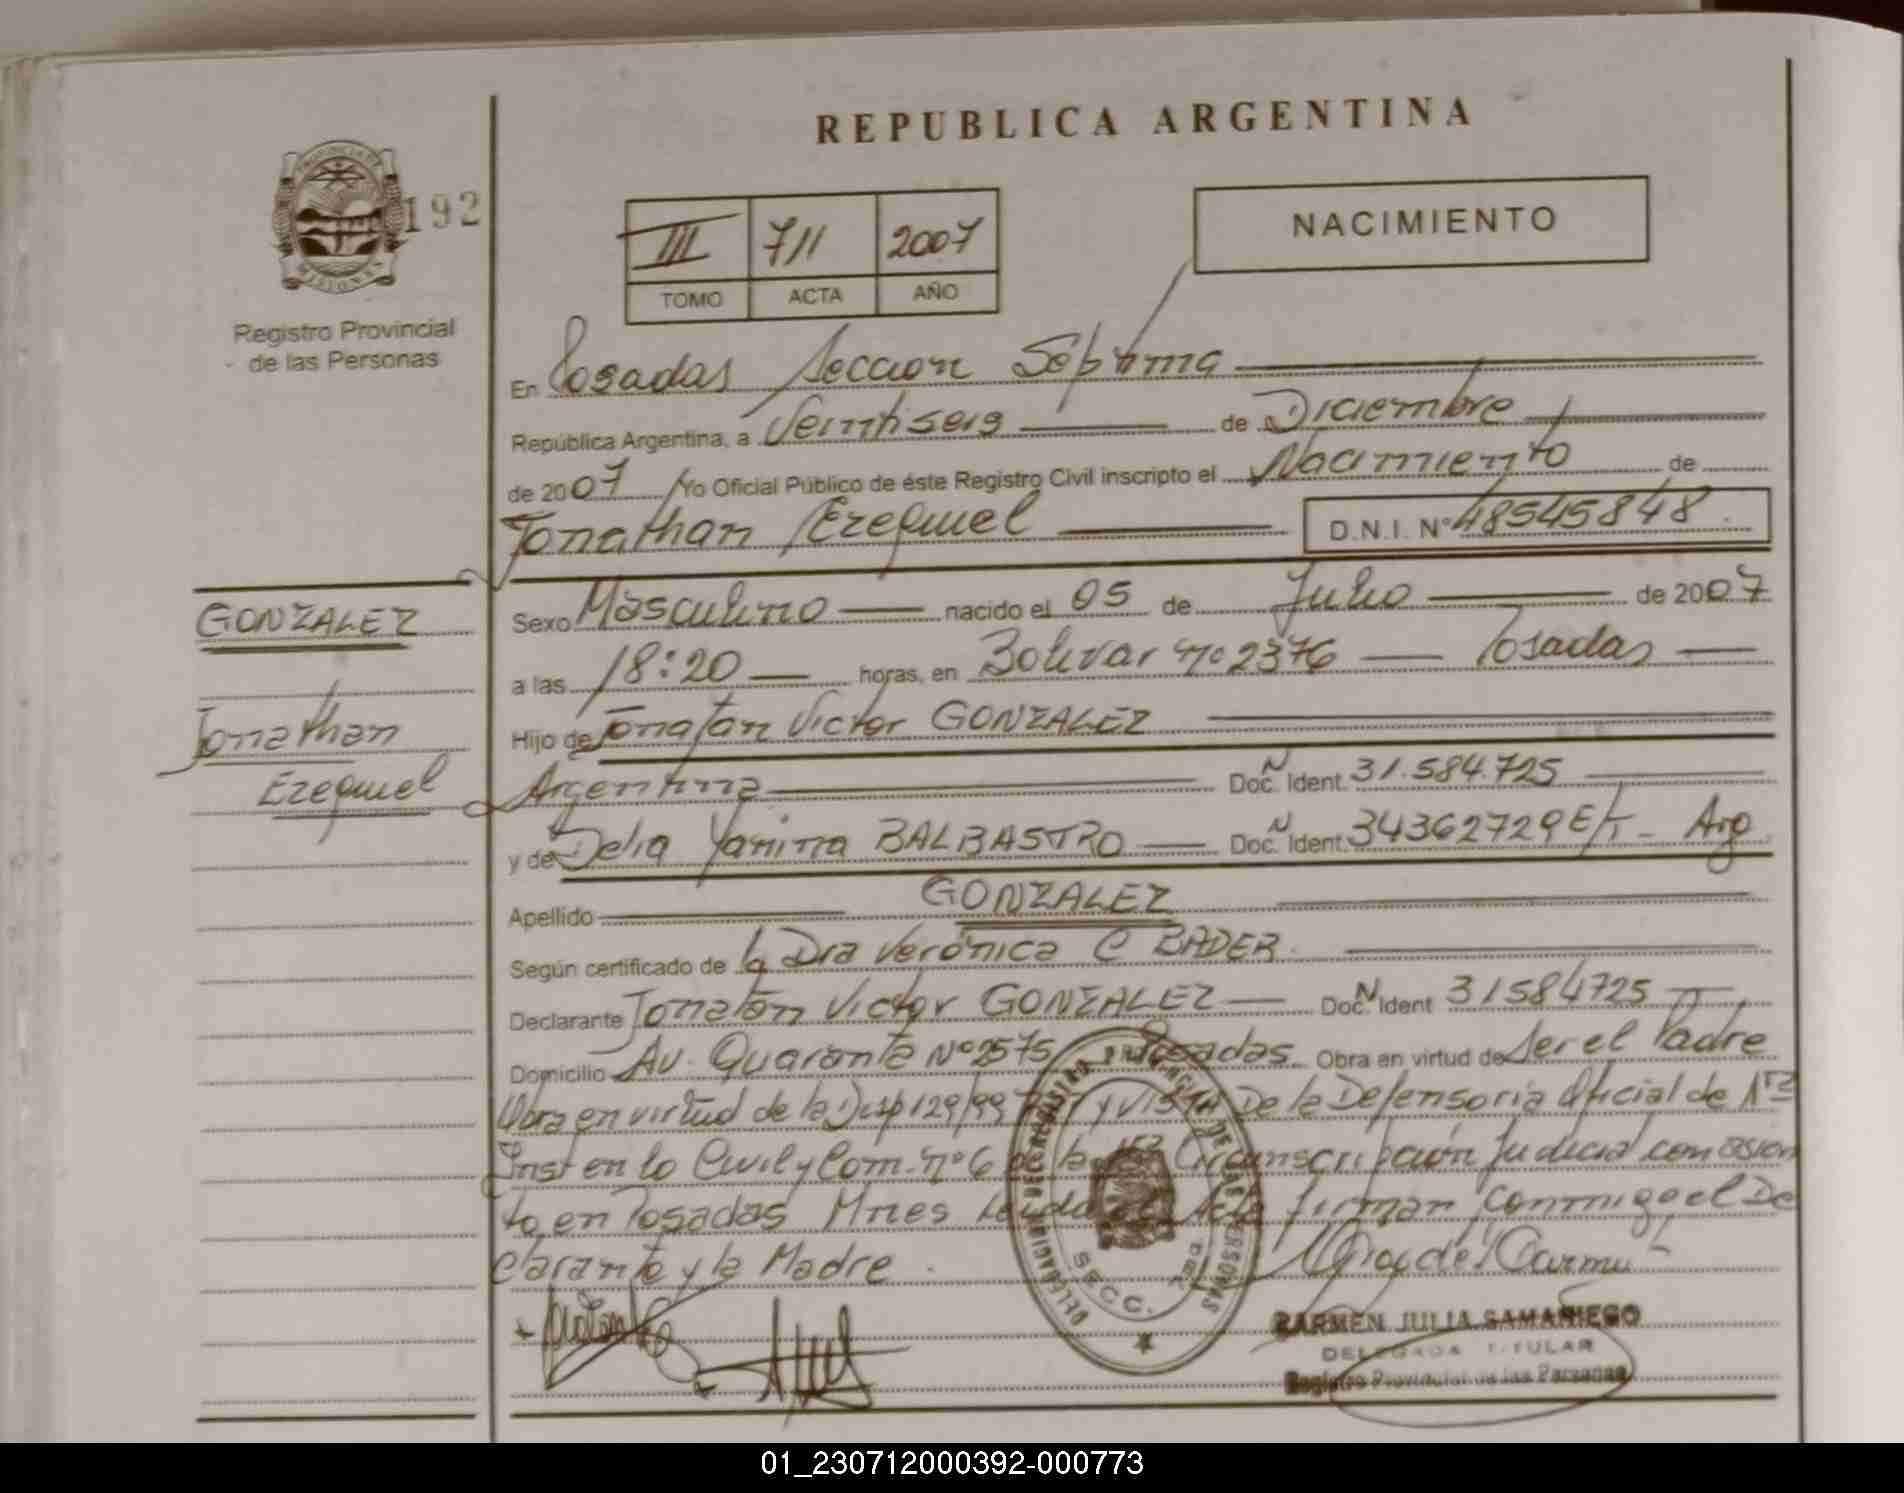 REPUBLICA ARGENTINA
PROVINCIA DE
MISIONES
192
Registro Provincial
de las Personas
III 711 2007
TOMO ACTA AÑO
NACIMIENTO
En Posadas Seccion Séptima
República Argentina, a Veintiseis de Diciembre
de 2007 Yo Oficial Público de éste Registro Civil inscripto el Nacimiento de
Jonathan Ezequiel D.N.I. Nº 48545848
GONZALEZ
Jonathan
Ezequiel
Sexo Masculino nacido el 05 de Julio de 2007
a las 18:20 horas, en Bolivar nº 2376 Posadas
Hijo de Jonatan Victor GONZALEZ
Argentina Doc. N Ident. 31.584.725
y de Delia Yanina BALBASTRO Doc. N Ident. 34362729 E/T - Arg
Apellido GONZALEZ
Según certificado de la Dra Verónica C BADER
Declarante Jonatan Victor GONZALEZ Doc. N Ident 31584725
Domicilio Av. Quaranta Nº 2575 Posadas Obra en virtud de Ser el Padre
Obra en virtud de la Disp 129/99 y VISTA De la Defensoria Oficial de 1ra
Inst en lo Civil y Com. nº 6 de la 1ra Circunscripción Judicial con asien
to en Posadas Mnes Leida el Acta firman conmigo el De
clarante y la Madre.
DELEGACION DEL REGISTRO PROVINCIAL DE LAS PERSONAS
SECC. 7ma
CARMEN JULIA SAMANIEGO
DELEGADA TITULAR
Registro Provincial de las Personas
01_230712000392-000773